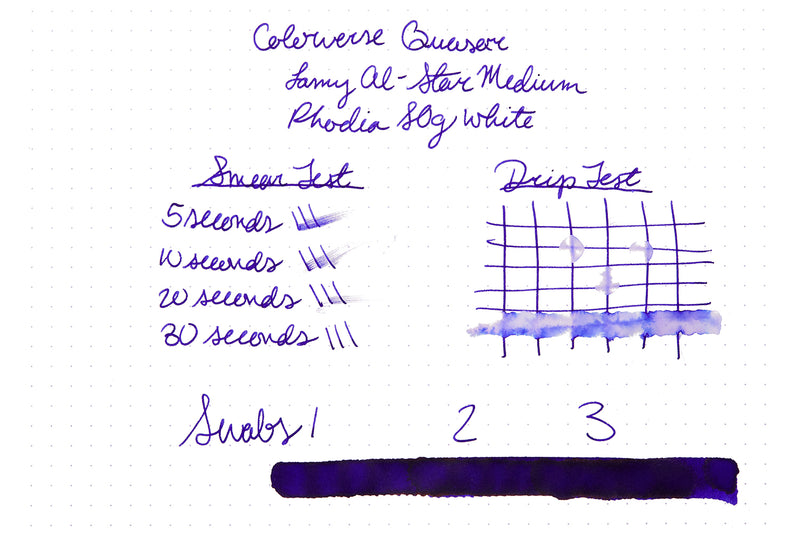 Colorverse Quasar
Lamy Al-Star Medium
Rhodia 80g White
Smear Test
Drip Test
5 seconds
10 seconds
20 seconds
30 seconds
Swabs 1 2 3